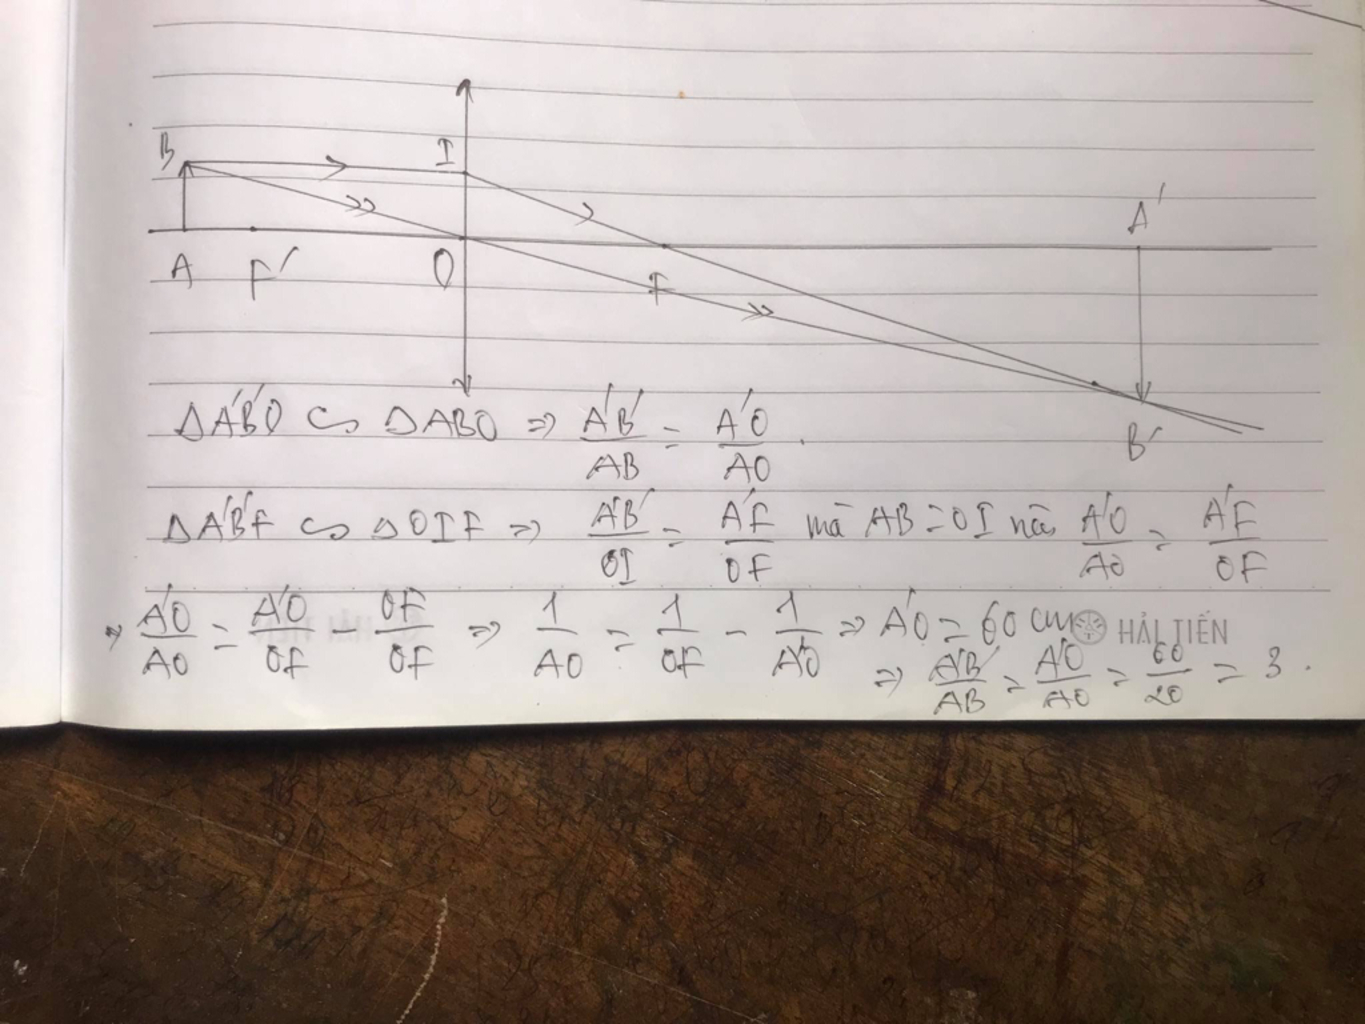 B I A'
A F' O F
B'
ΔA'B'O ∽ ΔABO ⇒ A'B'/AB = A'O/AO.
ΔA'B'F ∽ ΔOIF ⇒ A'B'/OI = A'F/OF mà AB = OI nên A'O/AO = A'F/OF
⇒ A'O/AO = A'O/OF - OF/OF ⇒ 1/AO = 1/OF - 1/A'O ⇒ A'O = 60 cm
HẢI TIẾN
⇒ A'B'/AB = A'O/AO = 60/20 = 3.